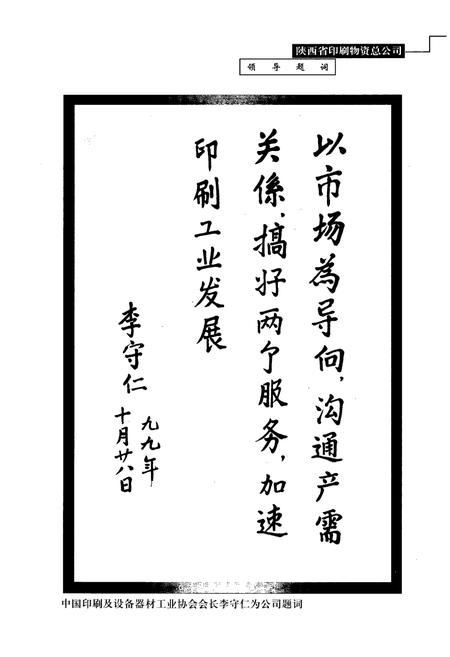 陕西省印刷物资总公司
领导题词
以市场為导向,沟通产需
关係,搞好两个服务,加速
印刷工业发展
李守仁
九九年
十月廿八日
中国印刷及设备器材工业协会会长李守仁为公司题词